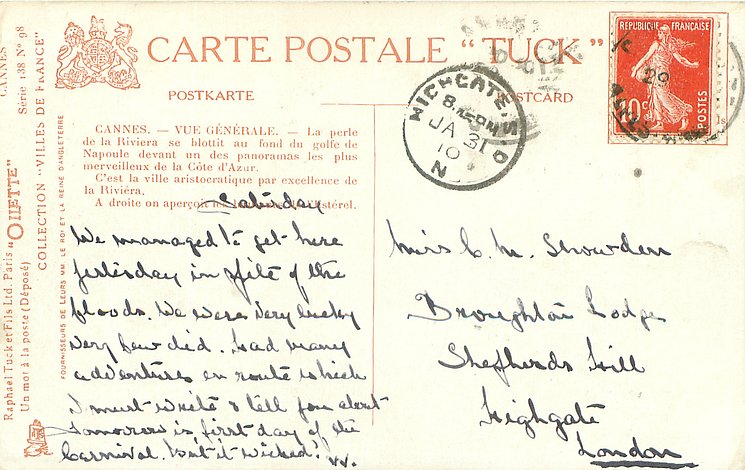 CARTE POSTALE "TUCK"
POSTKARTE
POSTCARD
REPUBLIQUE FRANÇAISE
10c
POSTES
29
HIGHGATE. S.O
8.15 PM
JA 31
10
N
CANNES. — VUE GÉNÉRALE. — La perle
de la Riviera se blottit au fond du golfe de
Napoule devant un des panoramas les plus
merveilleux de la Côte d'Azur.
C'est la ville aristocratique par excellence de
la Riviéra.
A droite on aperçoit
Saturday
We managed to get here
yesterday in spite of the
floods. We were very lucky
very few did. Had many
adventures en route which
I must write & tell you about
tomorrow is first day of the
Carnival. Isn't it wicked!
Miss C. M. Snowden
Broughton Lodge
Shepherds Hill
Highgate
London
CANNES
Série 138 Nº 98
COLLECTION "VILLES DE FRANCE"
FOURNISSEURS DE LEURS MM. LE ROI ET LA REINE D'ANGLETERRE
Raphael Tuck et Fils Ltd. Paris "OILETTE"
Un mot à la poste (Déposé)